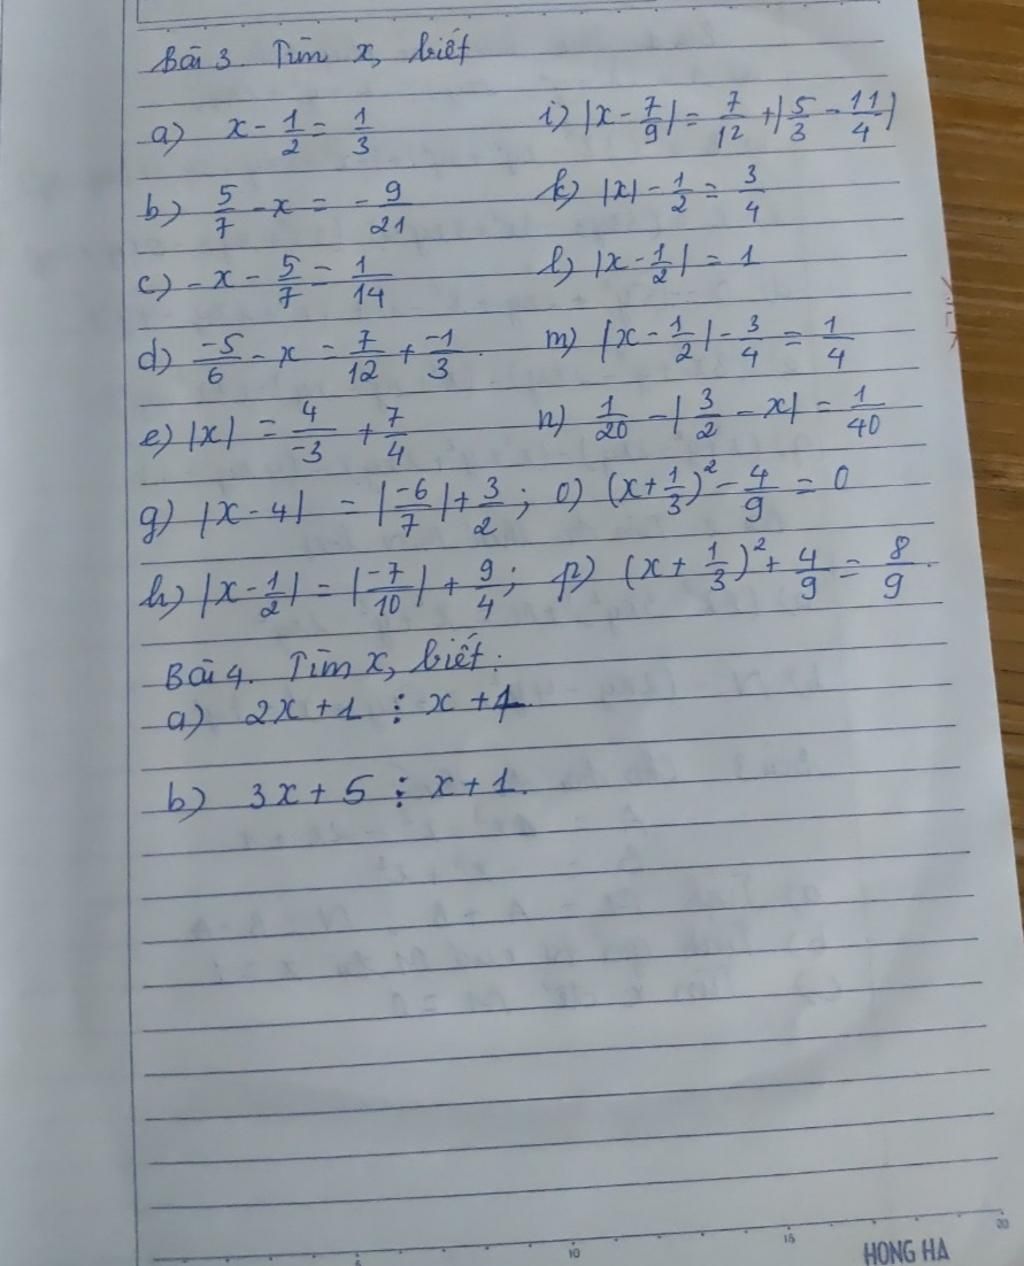 Bài 3. Tìm x, biết
a) x - 1/2 = 1/3 i) |x - 7/9| = 7/12 + |5/3 - 11/4|
b) 5/7 - x = - 9/21 k) |x| - 1/2 = 3/4
c) - x - 5/7 = 1/14 l) |x - 1/2| = 1
d) -5/6 - x = 7/12 + -1/3. m) |x - 1/2| - 3/4 = 1/4
e) |x| = 4/-3 + 7/4 n) 1/20 - |3/2 - x| = 1/40
g) |x - 4| = |-6/7| + 3/2; o) (x + 1/3)² - 4/9 = 0
h) |x - 1/2| = |-7/10| + 9/4; p) (x + 1/3)² + 4/9 = 8/9.
Bài 4. Tìm x, biết:
a) 2x + 1 ⋮ x + 1.
b) 3x + 5 ⋮ x + 1.
5 10 15 20
HONG HA